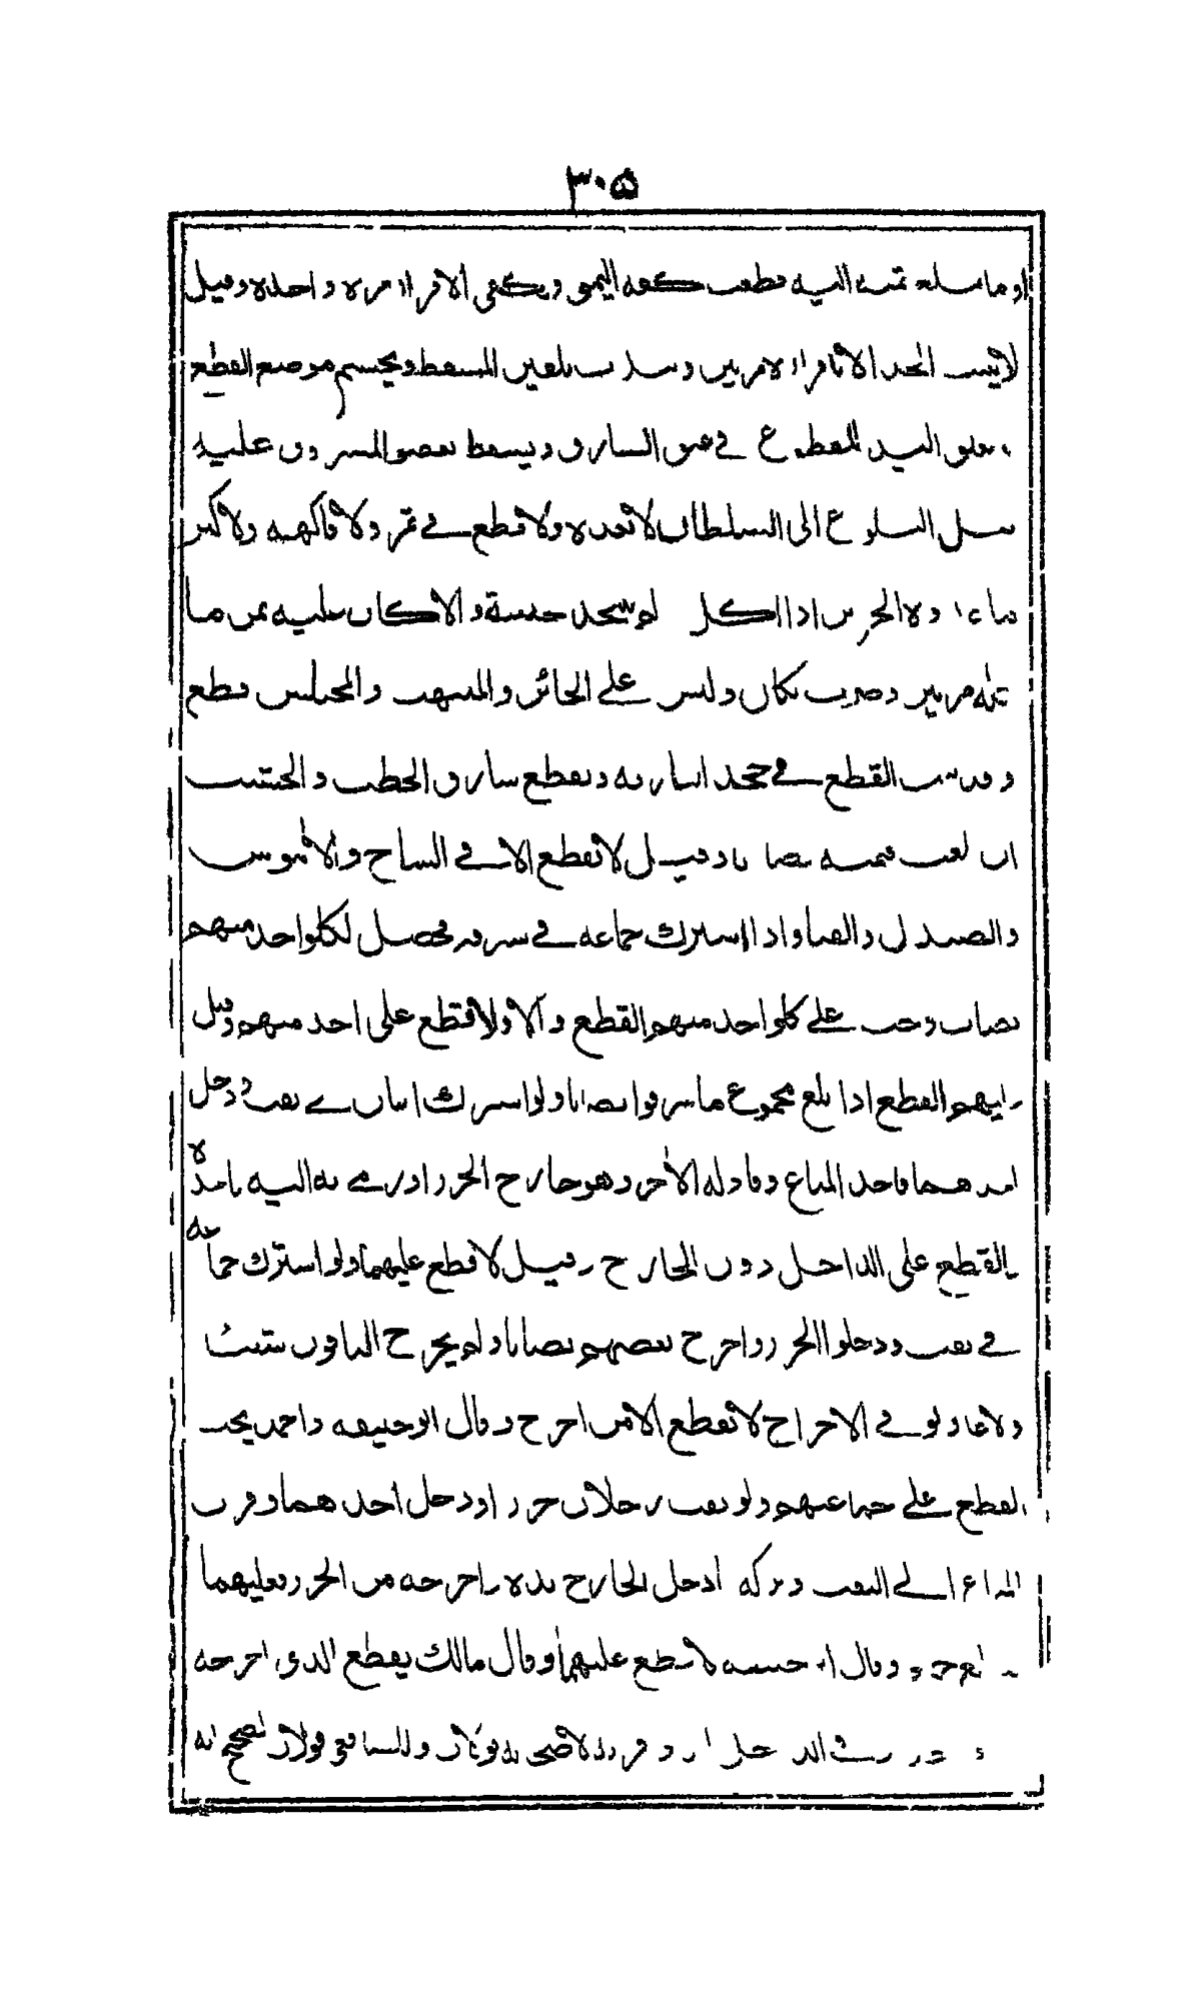 ٣٠٥
او ما يبلغ قيمته اليه قطعت كفه اليمنى ويكفي الاقرار مرة واحدة وقيل
لا يثبت الحد الا باقراره مرتين وندب تلقين المسقط ويحسم موضع القطع
وتعلق اليد المقطوع في عنق السارق ويسقط بعفو المسروق عليه
قبل البلوغ الى السلطان لا بعده ولا قطع في ثمر ولا فاكهة ولا كثر
ما لم يؤوه الجرين اذا اكل ولم يتخذ خبنة والا كان عليه ثمن ما
حمله مرتين وضرب نكال وليس على الخائن والمنتهب والمختلس قطع
وقد ثبت القطع في جحد العارية ويقطع سارق الحطب والخشب
ان بلغت قيمته نصابا وقيل لا يقطع الا في الساج والابنوس
والصندل والقنا واذا اشترك جماعة في سرقة فحصل لكل واحد منهم
نصاب وجب على كل واحد منهم القطع والا ولا قطع على احد منهم وقيل
عليهم القطع اذا بلغ مجموع ما سرقوا نصابا ولو اشترك اثنان في نقب ودخل
احدهما فاخذ المتاع وناوله الاخر وهو خارج الحرز او رمى به اليه فاخذه
فالقطع على الداخل دون الخارج وقيل لا قطع عليهما ولو اشترك جماعة
في نقب ودخلوا الحرز واخرج بعضهم نصابا ولم يخرج الباقون شيئا
ولا عاونوا في الاخراج لا يقطع الا من اخرج وقال ابو حنيفة واحمد يجب
القطع على جماعتهم ولو نقب رجلان حرزا ودخل احدهما وقرب
المتاع الى النقب وتركه ادخل الخارج يده واخرجه من الحرز فعليهما
وقال ابو حنيفة لا يقطع عليهما وقال مالك يقطع الذي اخرجه
قولان وللشافعي قولان اصحهما انه